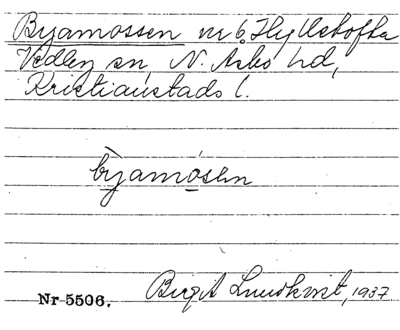 Byamossen nr 6, Hylleholfka
Vedby sn, N. Åsbo hd,
Kristianstads l.
byamósen
Nr 5506. Birgit Lundkvist, 1937